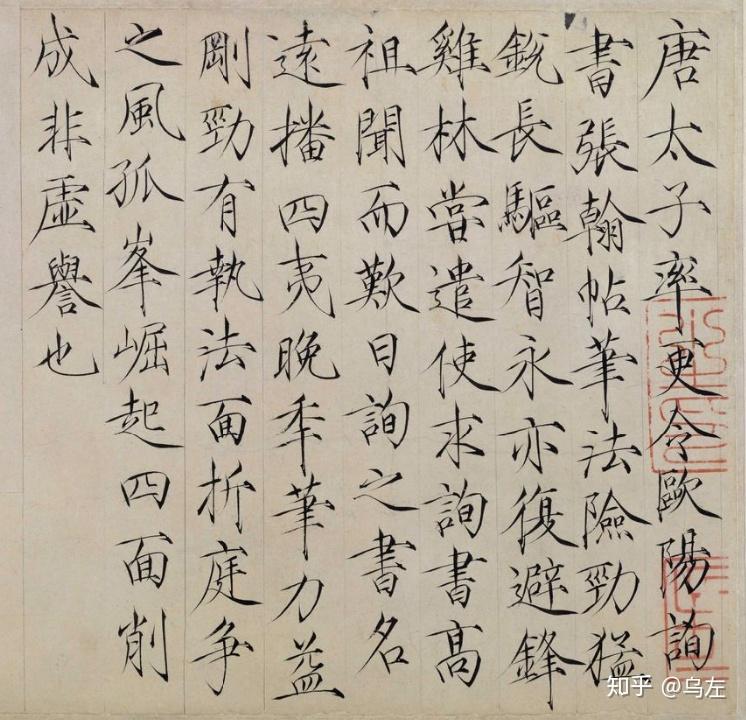 唐太子率更令歐陽詢
書張翰帖筆法險勁猛
銳長驅智永亦復避鋒
雞林嘗遣使求詢書高
祖聞而歎曰詢之書名
遠播四夷晚年筆力益
剛勁有執法面折庭爭
之風孤峯崛起四面削
成非虛譽也
知乎 @乌左